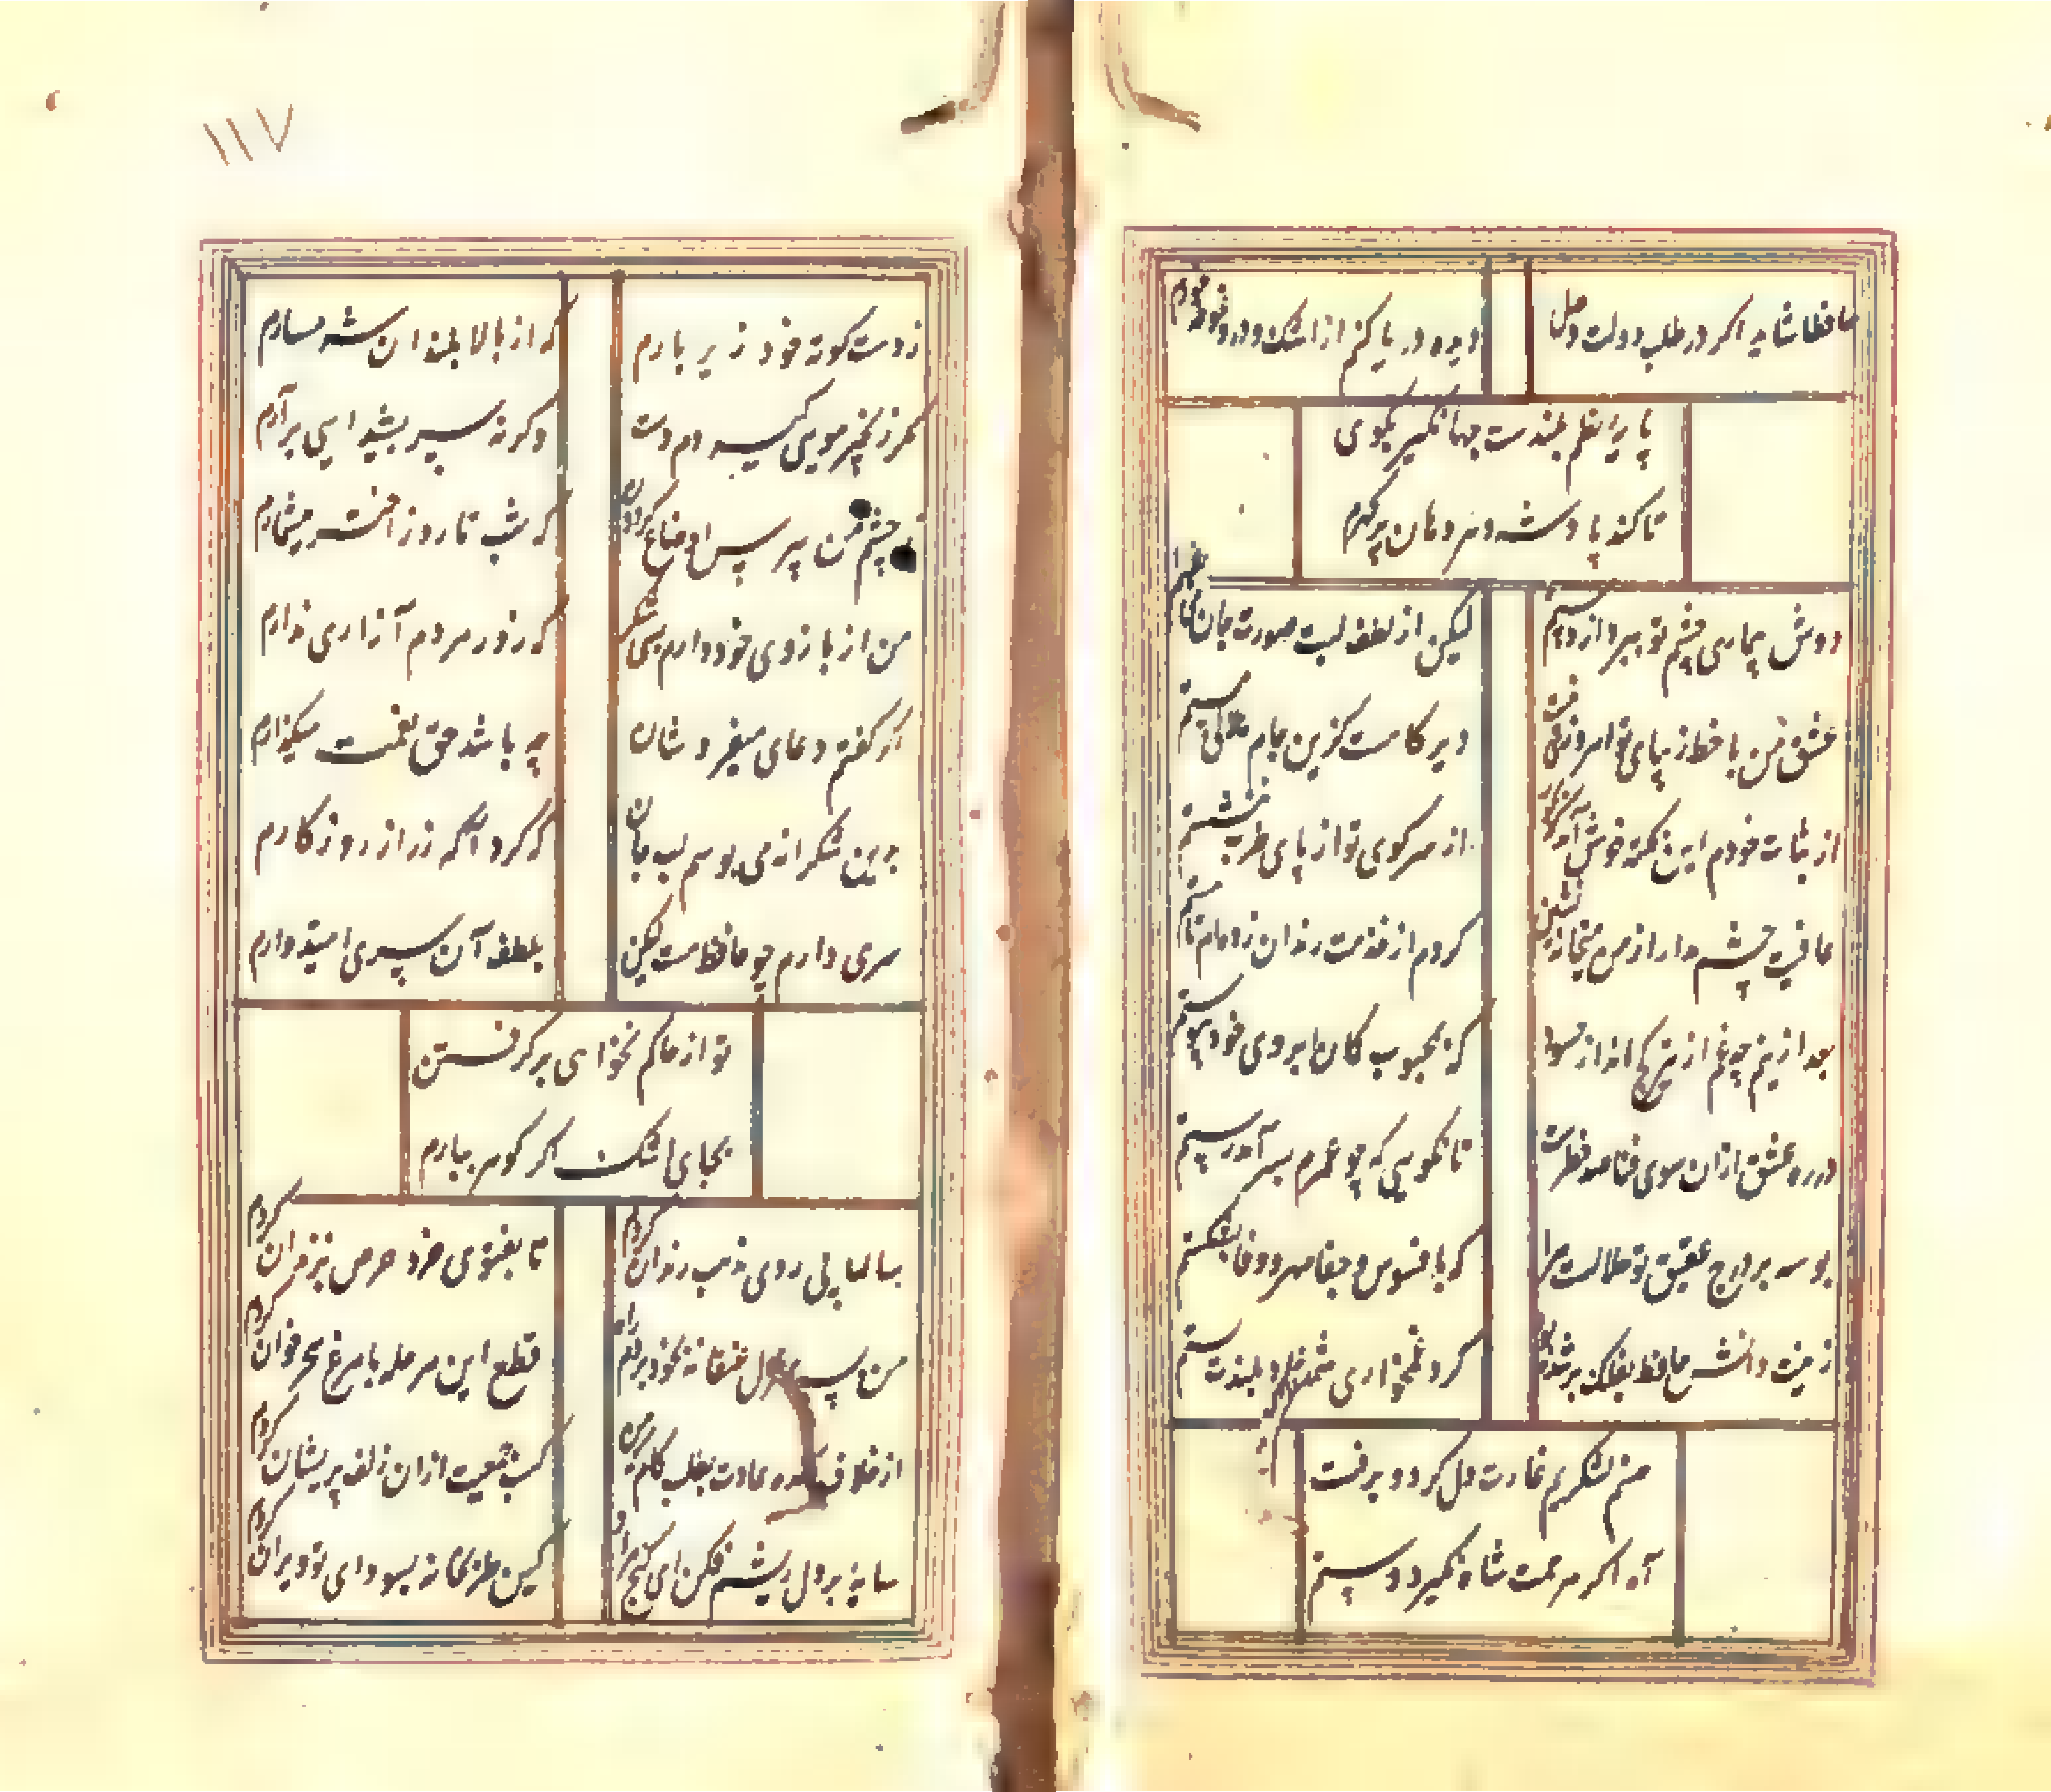 حافظا شاید اگر در طلب دولت وصل
دیده دریا کنم از اشک و درو غوطه خورم
پایه نظم بلندست جهانگیر بگوی
تا کند پادشه دهر دهان پر گهرم
دوش بیماری چشم تو ببرد از دستم
لیکن از لطف لبت صورت جان می بستم
عشق من با خط از پای تو امروزی نیست
دیر گاهست کزین جام هلالی مستم
از ثبات خودم این نکته خوش آمد که بجور
از سر کوی تو از پای طلب ننشستم
عافیت چشم مدار از من میخانه نشین
که دم از خدمت رندان زده‌ام تا هستم
بعد ازینم چه غم از تیر کج انداز حسود
که بمحبوب کمان ابروی خود پیوستم
در ره عشق ازان سوی فنا صد خطرست
تا نگویی که چو عمرم بسر آمد رستم
بوسه بر درج عقیق تو حلالست مرا
که بافسوس و جفا مهر و وفا بشکستم
رتبت دانش حافظ بفلک بر شده بود
کرد غمخواری شمشاد بلندت پستم
صنم لشکریم غارت دل کرد و برفت
آه اگر مرحمت شاه نگیرد دستم
۱۱۷
ز دست کوته خود زیر بارم
که از بالا بلندان شرمسارم
مگر زنجیر مویی گیردم دست
وگرنه سر بشیدایی برآرم
ز چشم من بپرس اوضاع گردون
که شب تا روز اختر میشمارم
من از بازوی خود دارم بسی شکر
که زور مردم آزاری ندارم
اگر گفتم دعای میفروشان
چه باشد حق نعمت میگزارم
بدین شکرانه می بوسم لب جان
که کرد آگه ز راز روزگارم
سری دارم چو حافظ مست لیکن
بلطف آن سری امیدوارم
تو از خاکم نخواهی برگرفتن
بجای اشک اگر گوهر ببارم
سالها پی روی مذهب رندان کردم
تا بفتوی خرد حرص بزندان کردم
من بسر منزل عنقا نه بخود بردم راه
قطع این مرحله با مرغ سحر خوان کردم
از خلاف آمد عادت بطلب کام که من
کسب جمعیت ازان زلف پریشان کردم
سایه بر دل ریشم فکن ای گنج مراد
کین خانه بسودای تو ویران کردم